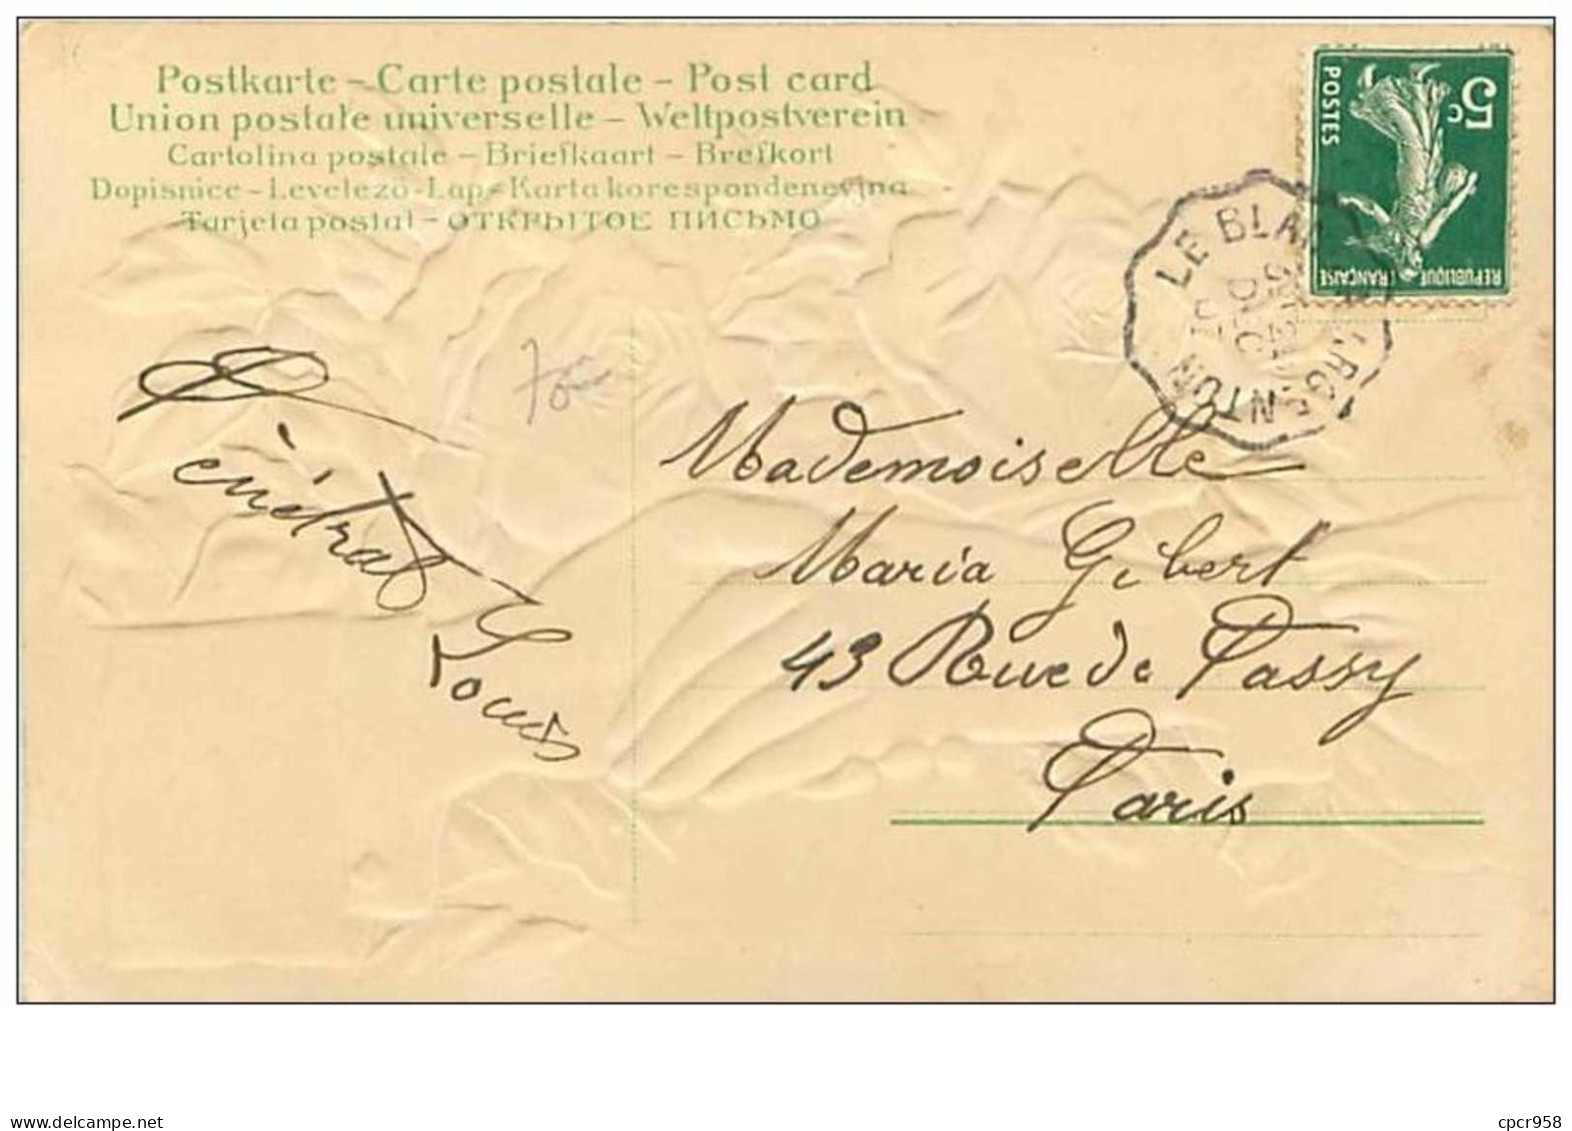 Postkarte – Carte postale – Post card
Union postale universelle – Weltpostverein
Cartolina postale – Briefkaart – Brefkort
Dopisnice – Levelezö-Lap – Karta korespondencyjna
Tarjeta postal – ОТКРЫТОЕ ПИСЬМО
5c
POSTES
REPUBLIQUE FRANÇAISE
LE BLA
NTON
Général
Louis
Mademoiselle
Maria Gibert
43 Rue de Passy
Paris
www.delcampe.net
cpcr958